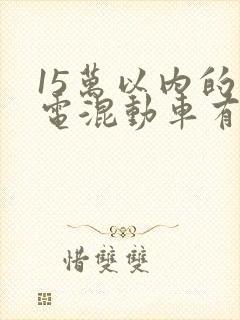 15萬以內的
電混動車有
惜雙雙